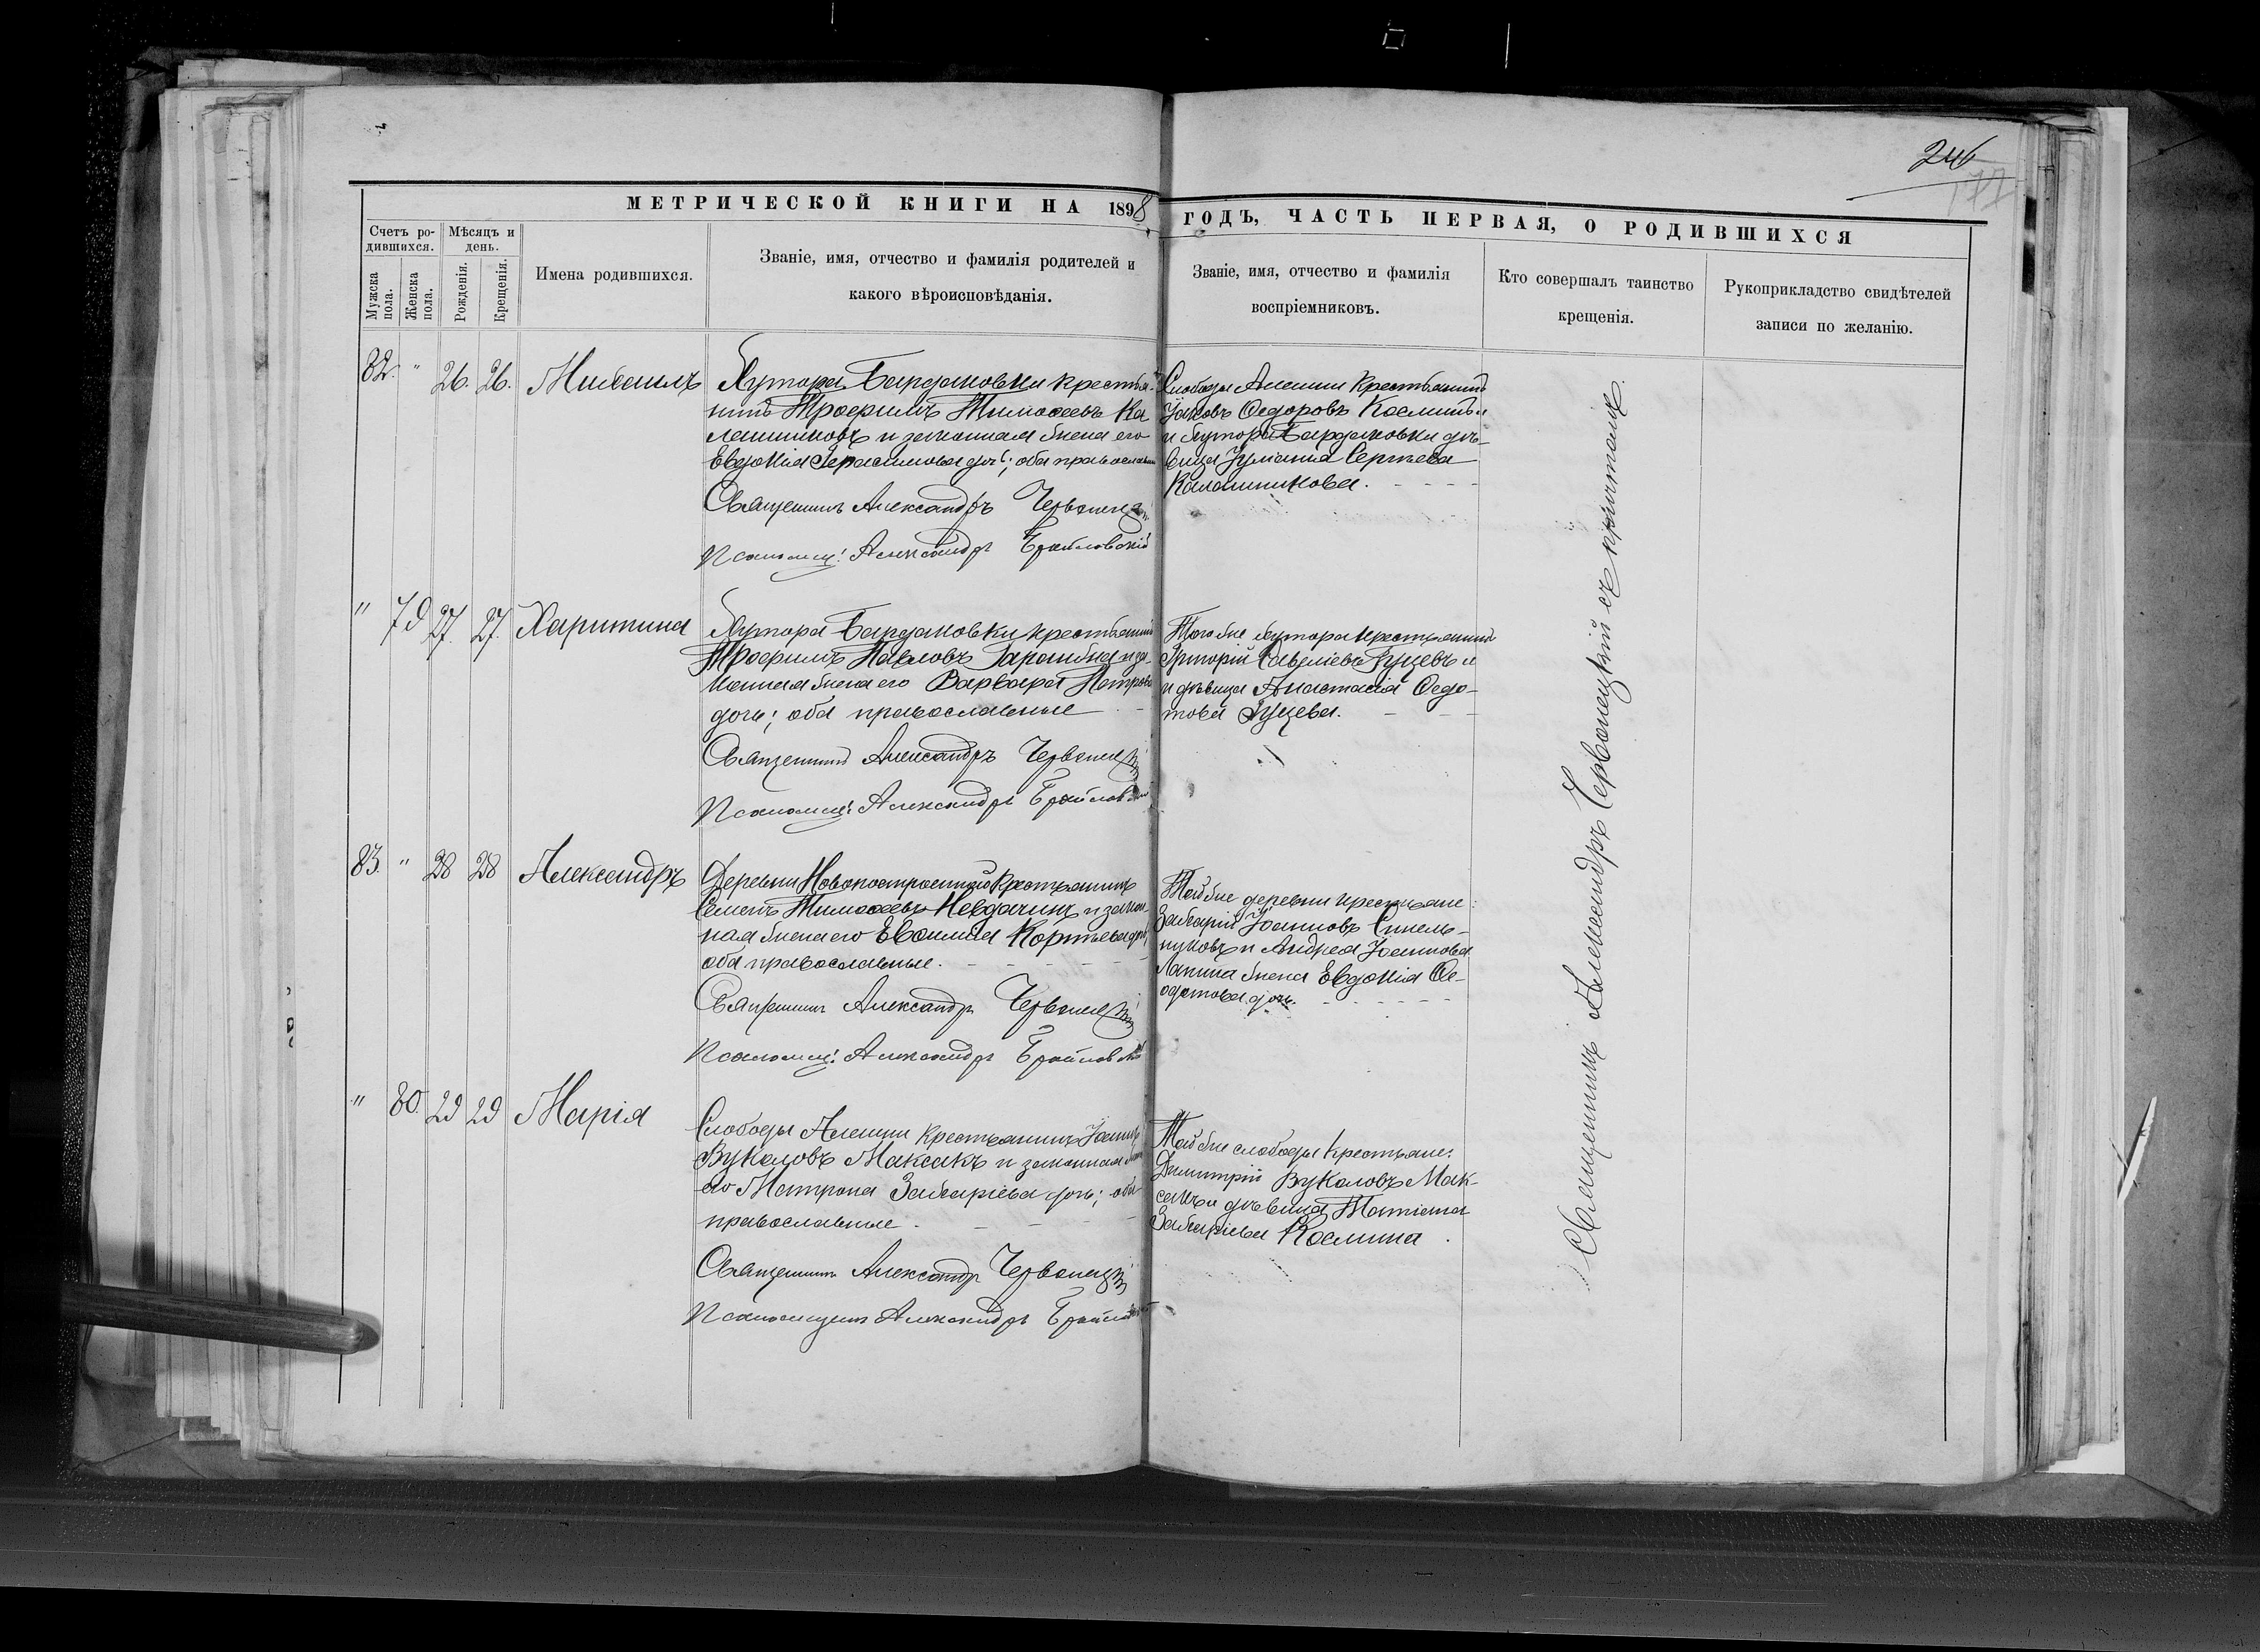 246
МЕТРИЧЕСКОЙ КНИГИ НА 1898 ГОДЪ, ЧАСТЬ ПЕРВАЯ, О РОДИВШИХСЯ
Счетъ ро-
дившихся.
Мужска пола.
Женска пола.
Мѣсяцъ и
день.
Рожденія.
Крещенія.
Имена родившихся.
Званіе, имя, отчество и фамилія родителей и
какого вѣроисповѣданія.
Званіе, имя, отчество и фамилія
воспріемниковъ.
Кто совершалъ таинство
крещенія.
Рукоприкладство свидѣтелей
записи по желанію.
82. " 26. 26. Михаилъ
Хутора Бардаковки крестья-
нинъ Трофимъ Тимоѳеевъ Ка
лашниковъ и законная жена его
Евдокія Герасимова дочь; оба православные
Священникъ Александръ Червонецкій
Псаломщ: Александръ Брайловскій
Слободы Алешки крестьянинъ
Іаковъ Ѳедоровъ Косминъ
и хутора Бардаковки дѣ-
вица Іуліанія Сергѣева
Калашникова.
" 79 27. 27. Харитина
Хутора Бардаковки крестьянинъ
Трофимъ Павловъ и за-
конная жена его Варвара Петрова
дочь; оба православные
Священникъ Александръ Червонецкій
Псаломщ: Александръ Брайловскій
Того же хутора крестьянинъ
Григорій Савеліевъ и
и дѣвица Анастасія Ѳедо-
това
83. " 28 28 Александръ
Деревни Новопостроенной крестьянинъ
Семенъ Тимоѳеевъ Невдачинъ и закон-
ная жена его Евѳимія дочь;
оба православные.
Священникъ Александръ Червонецкій
Псаломщ: Александръ Брайловскій
Той же деревни крестьяне:
Захарій Іоанновъ Синель-
никовъ и Андрея Іоаннова
Лапина жена Евдокія Ѳе-
одотова дочь.
" 80. 29 29 Марія
Слободы Алешки крестьянинъ Іоаннъ
Вуколовъ Максакъ и законная жена
его Матрона Захаріева дочь; оба
православные.
Священникъ Александръ Червонецкій
Псаломщикъ Александръ Брайловскій
Той же слободы крестьяне:
Димитрій Вуколовъ Мак-
сакъ и дѣвица Татіана
Захаріева Космина.
Священникъ Александръ Червонецкій съ причтомъ.